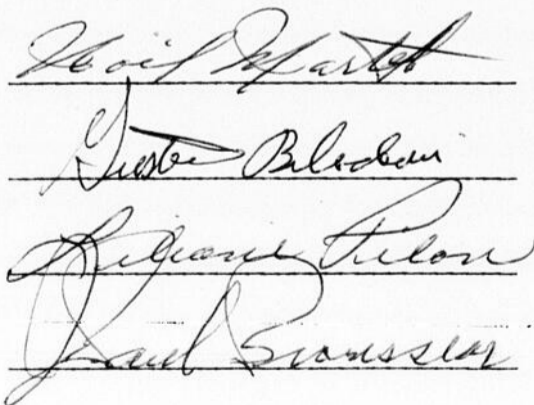 Noïl Martel
Gusta Bilodeau
Liliane Pilon
Paul Brousseau